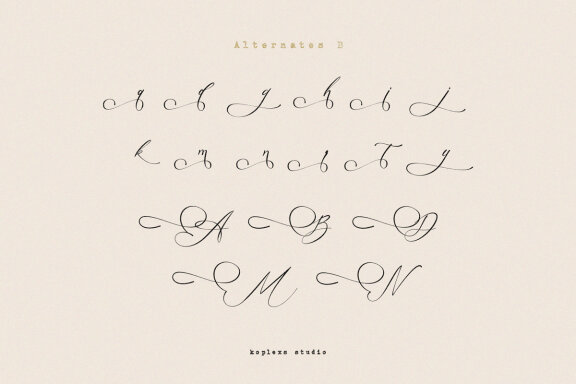 Alternates B
a d g h i j
k m n y
A B D
M N
koplexs studio